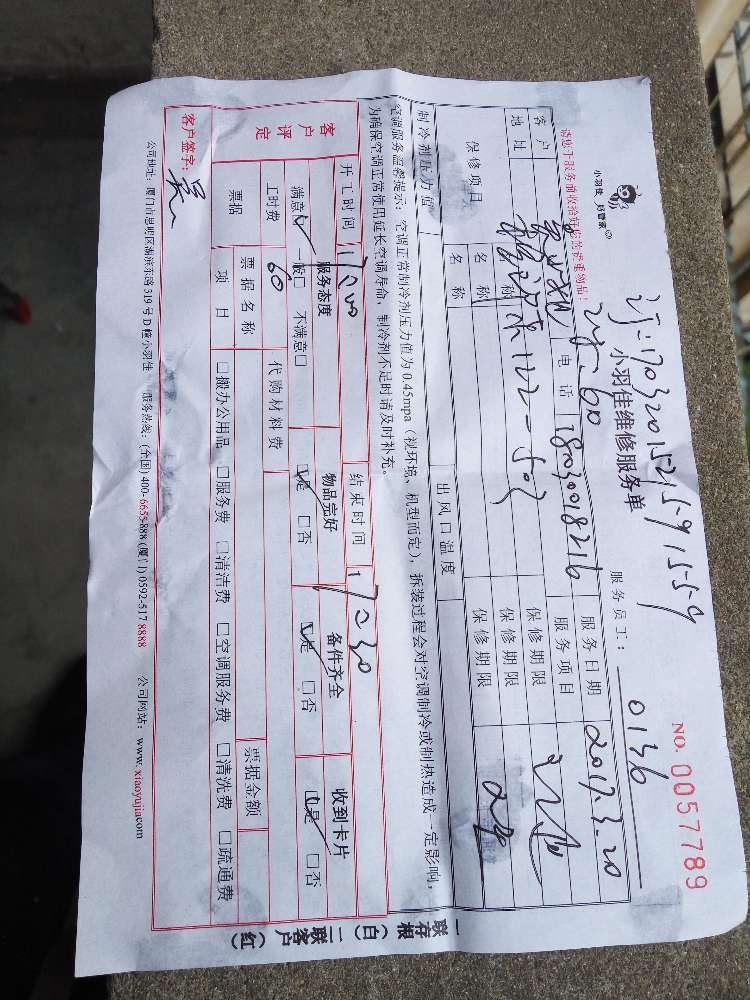 小羽佳 好管家
请您于服务前收拾好您的贵重物品!
小羽佳维修服务单
服务员工: 0136
NO. 0057789
客户
电话 18030018216
服务日期 2017.3.20
地址
122-503
服务项目
保修项目
名称
保修期限
名称
保修期限
名称
保修期限
制冷剂压力值
出风口温度
空调服务温馨提示: 空调正常制冷剂压力值为0.45mpa(视环境、机型而定), 拆装过程会对空调制冷或制热造成一定影响,
为确保空调正常使用延长空调寿命, 制冷剂不足时请及时补充。
开工时间 17:00
结束时间 17:30
客户评定
服务态度
物品完好
备件齐全
收到卡片
满意☑ 一般□ 不满意□
☑是 □否
☑是 □否
☑是 □否
工时费 60
代购材料费
票据
票据名称
票据金额
项目
□搬办公用品 □服务费 □清洁费 □空调服务费 □清洗费 □疏通费
客户签字:
公司地址: 厦门市思明区湖滨东路319号D幢小羽佳 服务热线: (全国) 400-6655-888 (厦门) 0592-517 8888 公司网站: www.xiaoyujia.com
一联存根(白) 二联客户(红)